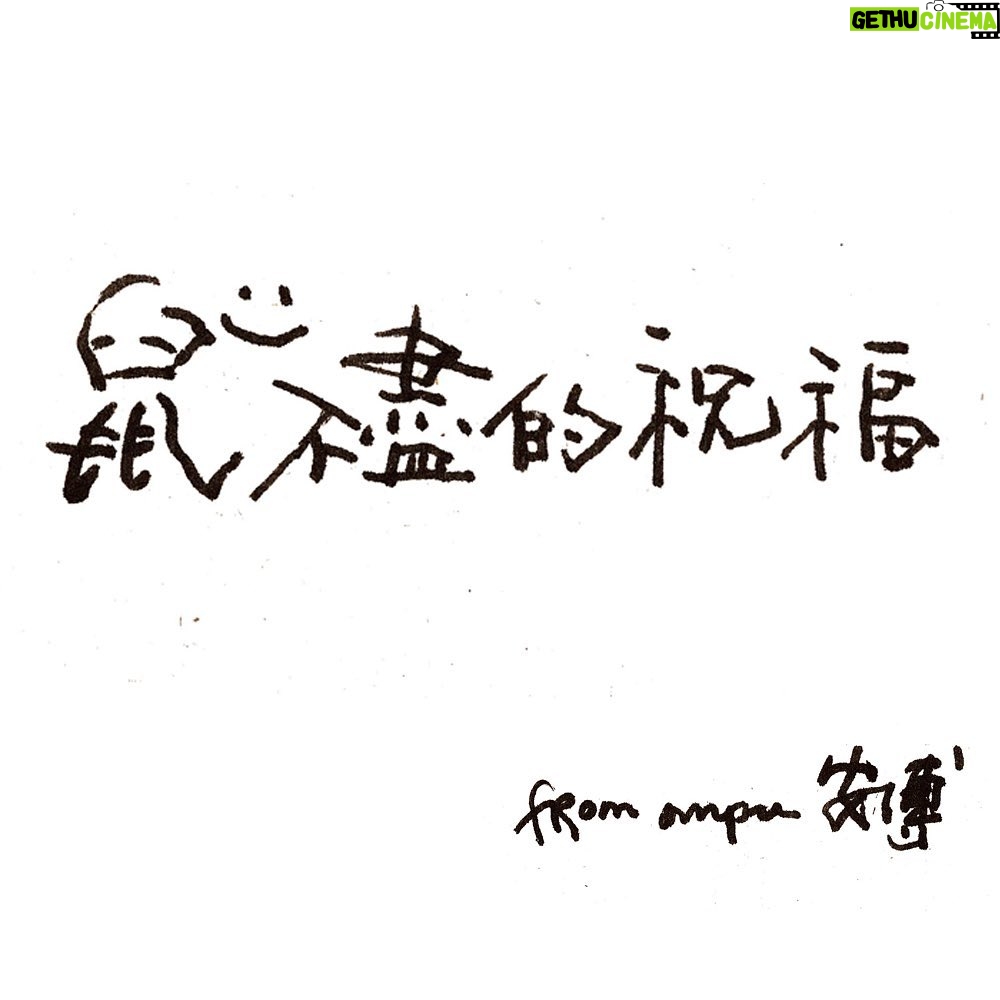 GETHUCINEMA
鼠不盡的祝福
from ampu 安溥